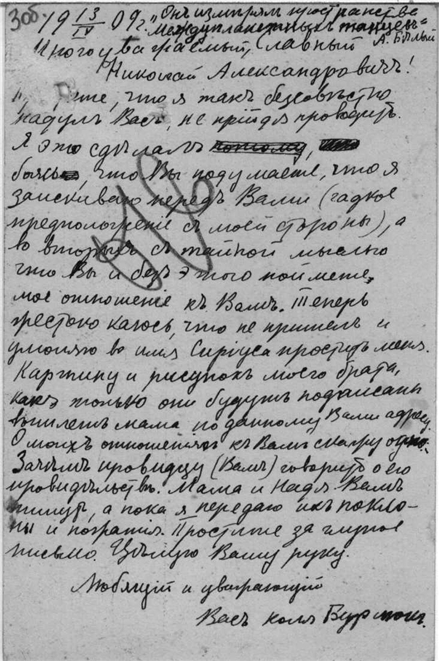 306 19 13/IV 09 г. "Онъ измѣрялъ пространства
Междупланетныхъ танцевъ"
А. Бѣлый
Многоуважаемый, славный
Николай Александровичъ!
что я такъ безсовѣстно
надулъ Васъ, не прійдя проводить.
Я это сдѣлалъ
боясь, что Вы подумаете, что я
заискиваю передъ Вами (гадкое
предположеніе съ моей стороны), а
во вторыхъ съ тайной мыслью
что Вы и безъ этого поймете,
мое отношеніе къ Вамъ. Теперь
жестоко каюсь, что не пришелъ и
умоляю во имя Сиріуса простить меня.
Картину и рисунокъ моего брата,
какъ только они будутъ подписаны
вышлетъ мама по данному Вами адресу.
О моихъ отношеніяхъ къ Вамъ скажу одно.
Зачѣмъ провидцу (Вамъ) говорить о его
провидѣльствѣ. Мама и Надя Вамъ
пишутъ, а пока я передаю ихъ покло-
ны и Простите за глупое
письмо. Цѣлую Вашу руку.
Любящій и уважающій
Васъ Коля Бурлюкъ.